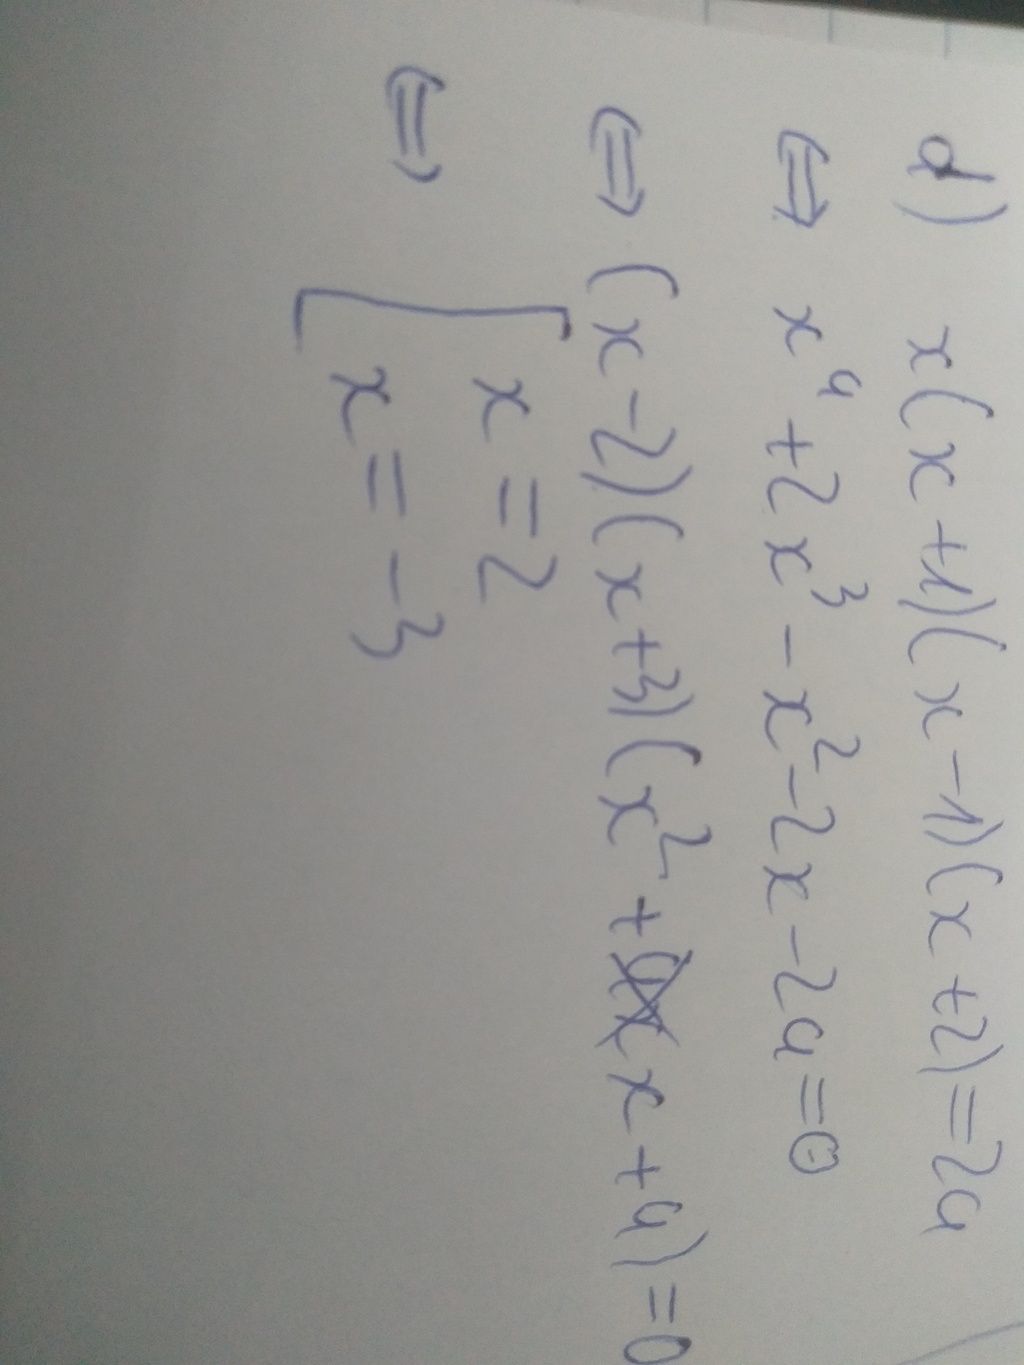 d) x(x+1)(x-1)(x+2)=24
⇔ x⁴+2x³-x²-2x-24=0
⇔ (x-2)(x+3)(x²+x+4)=0
⇔ [ x=2
x=-3